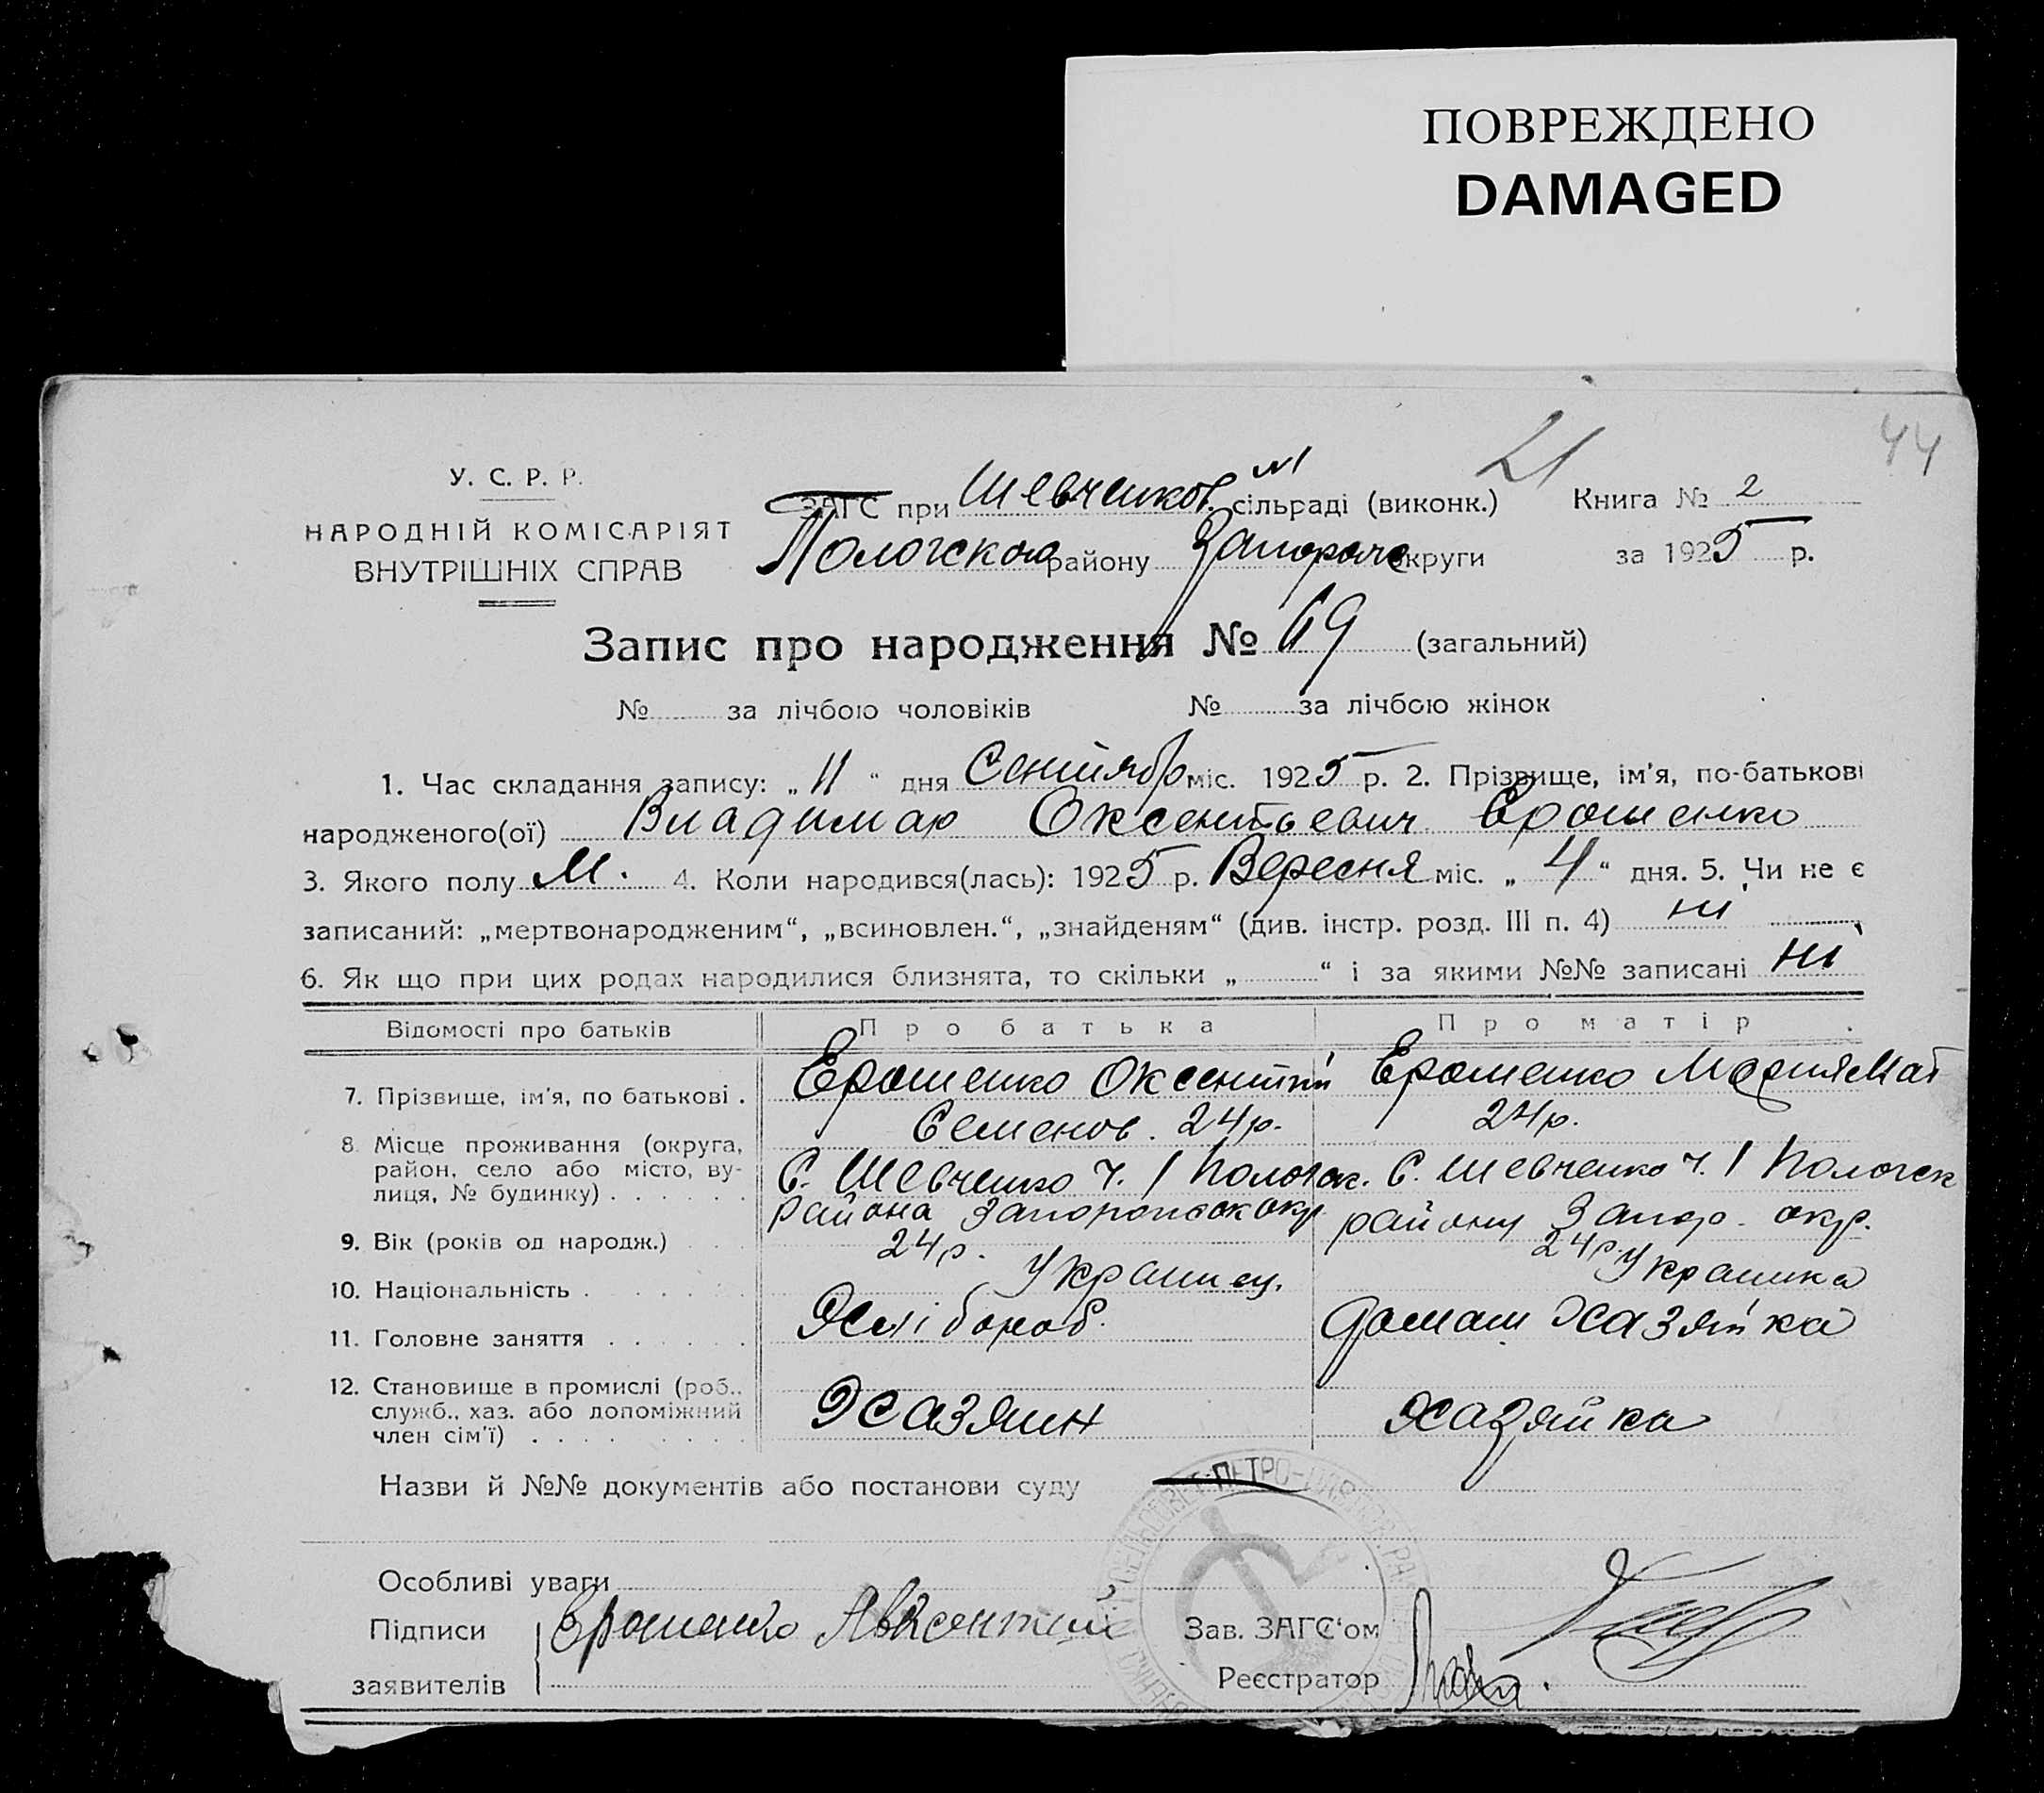 ПОВРЕЖДЕНО
DAMAGED
44
21
У. С. Р. Р.
НАРОДНІЙ КОМІСАРІЯТ
ВНУТРІШНІХ СПРАВ
ЗАГС при Шевченков. №1 сільраді (виконк.) Книга № 2
Пологского району Запорож округи за 1925 р.
Запис про народження № 69 (загальний)
№ за лічбою чоловіків № за лічбою жінок
1. Час складання запису: „ 11 “ дня Сентябр міс. 1925 р. 2. Прізвище, ім'я, по-батькові
народженого(ої) Владимир Оксентьевич Ерошенко
3. Якого полу М. 4. Коли народився(лась): 1925 р. Вересня міс. „ 4 “ дня. 5. Чи не є
записаний: „мертвонародженим“, „всиновлен.“, „знайденям“ (див. інстр. розд. III п. 4) ні
6. Як що при цих родах народилися близнята, то скільки „ “ і за якими №№ записані ні
Відомості про батьків Про батька Про матір
7. Прізвище, ім'я, по батькові . Ерошенко Оксентий Ерошенко Мария Мат
Семенов. 24р. 24р.
8. Місце проживання (округа,
район, село або місто, ву-
лиця, № будинку) . . . . . .
С. Шевченко Ч. 1 Пологск. С. Шевченко Ч. 1 Пологск
района Запорожск окр району Запор. окр.
9. Вік (років од народж.) 24р. 24р.
10. Національність . Украинец. Украинка
11. Головне заняття . . . . . . Хлібороб. домаш Хазяйка
12. Становище в промислі (роб.,
служб., хаз. або допоміжний
член сім'ї) . . . .
Хазяин Хазяйка
Назви й №№ документів або постанови суду
Особливі уваги
Підписи Ерошенко Авксентий Зав. ЗАГС'ом
заявителів Реєстратор